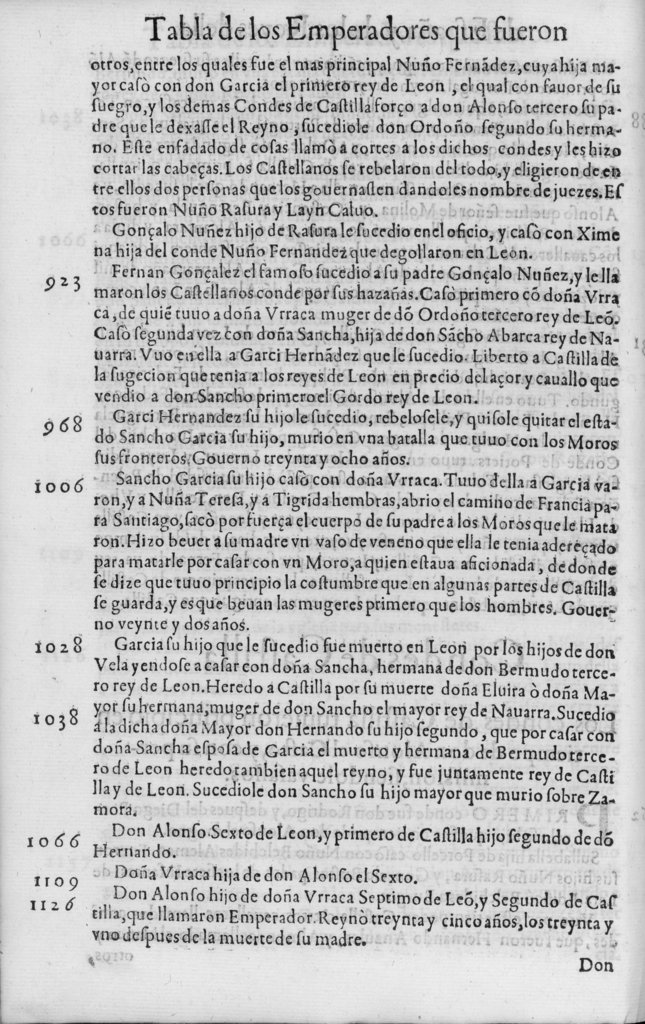 Tabla de los Emperadores que fueron
otros,entre los quales fue el mas principal Nuño Fernãdez,cuya hija ma-
yor casò con don Garcia el primero rey de Leon , el qual con fauor de su
suegro,y los demas Condes de Castilla forço a don Alonso tercero su pa-
dre que le dexasse el Reyno , sucediole don Ordoño segundo su herma-
no. Este enfadado de cosas llamò a cortes a los dichos condes y les hizo
cortar las cabeças. Los Castellanos se rebelaron del todo, y eligieron de en
tre ellos dos personas que los gouernassen dandoles nombre de juezes. Es
tos fueron Nuño Rasura y Layn Caluo.
Gonçalo Nuñez hijo de Rasura le sucedio en el oficio, y casò con Xime
na hija del conde Nuño Fernandez que degollaron en Leon.
923 Fernan Gonçalez el famoso sucedio a su padre Gonçalo Nuñez,y le lla
maron los Castellanos conde por sus hazañas. Casò primero cõ doña Vrra
ca , de quiẽ tuuo a doña Vrraca muger de dõ Ordoño tercero rey de Leõ.
Casò segunda vez con doña Sancha,hija de don Sãcho Abarca rey de Na-
uarra. Vuo en ella a Garci Hernãdez que le sucedio. Liberto a Castilla de
la sugecion que tenia a los reyes de Leon en precio del açor y cauallo que
vendio a don Sancho primero el Gordo rey de Leon.
968 Garci Hernandez su hijo le sucedio, rebelosele,y quisole quitar el esta-
do Sancho Garcia su hijo, murio en vna batalla que tuuo con los Moros
sus fronteros. Gouerno treynta y ocho años.
1006 Sancho Garcia su hijo casò con doña Vrraca. Tuuo della à Garcia va-
ron,y a Nuña Teresa,y à Tigrida hembras,abrio el camino de Francia pa-
ra Santiago,sacò por fuerça el cuerpo de su padre a los Moros que le mata
ron. Hizo beuer a su madre vn vaso de veneno que ella le tenia adereçado
para matarle por casar con vn Moro,a quien estaua aficionada , de donde
se dize que tuuo principio la costumbre que en algunas partes de Castilla
se guarda,y es que beuan las mugeres primero que los hombres. Gouer-
no veynte y dos años.
1028 Garcia su hijo que le sucedio fue muerto en Leon por los hijos de don
Vela yendose a casar con doña Sancha, hermana de don Bermudo terce-
ro rey de Leon. Heredo a Castilla por su muerte doña Eluira ò doña Ma-
yor su hermana,muger de don Sancho el mayor rey de Nauarra. Sucedio
1038 à la dicha doña Mayor don Hernando su hijo segundo , que por casar con
doña Sancha esposa de Garcia el muerto y hermana de Bermudo terce-
ro de Leon heredo tambien aquel reyno, y fue juntamente rey de Casti
lla y de Leon. Sucediole don Sancho su hijo mayor que murio sobre Za-
mora.
1066 Don Alonso Sexto de Leon,y primero de Castilla hijo segundo de dõ
Hernando.
1109 Doña Vrraca hija de don Alonso el Sexto.
1126 Don Alonso hijo de doña Vrraca Septimo de Leõ,y Segundo de Cas
tilla,que llamaron Emperador. Reynò treynta y cinco años,los treynta y
vno despues de la muerte de su madre.
Don